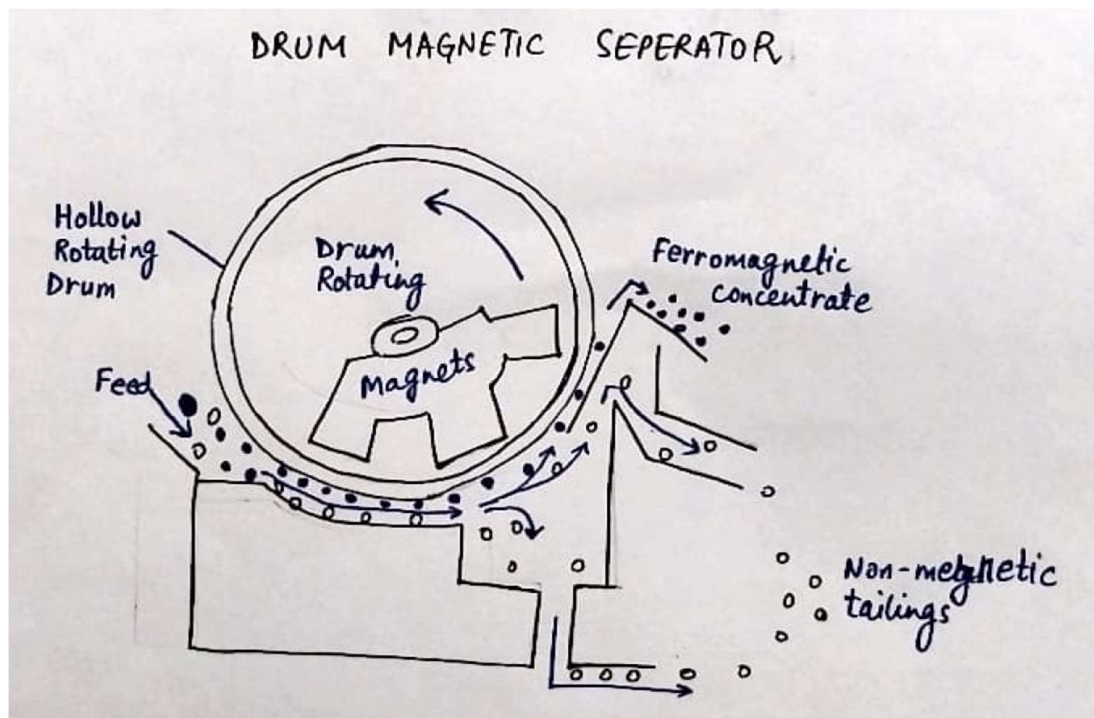 DRUM MAGNETIC SEPERATOR
Hollow
Rotating
Drum
Drum,
Rotating
Magnets
Feed
Ferromagnetic
concentrate
Non-megnetic
tailings